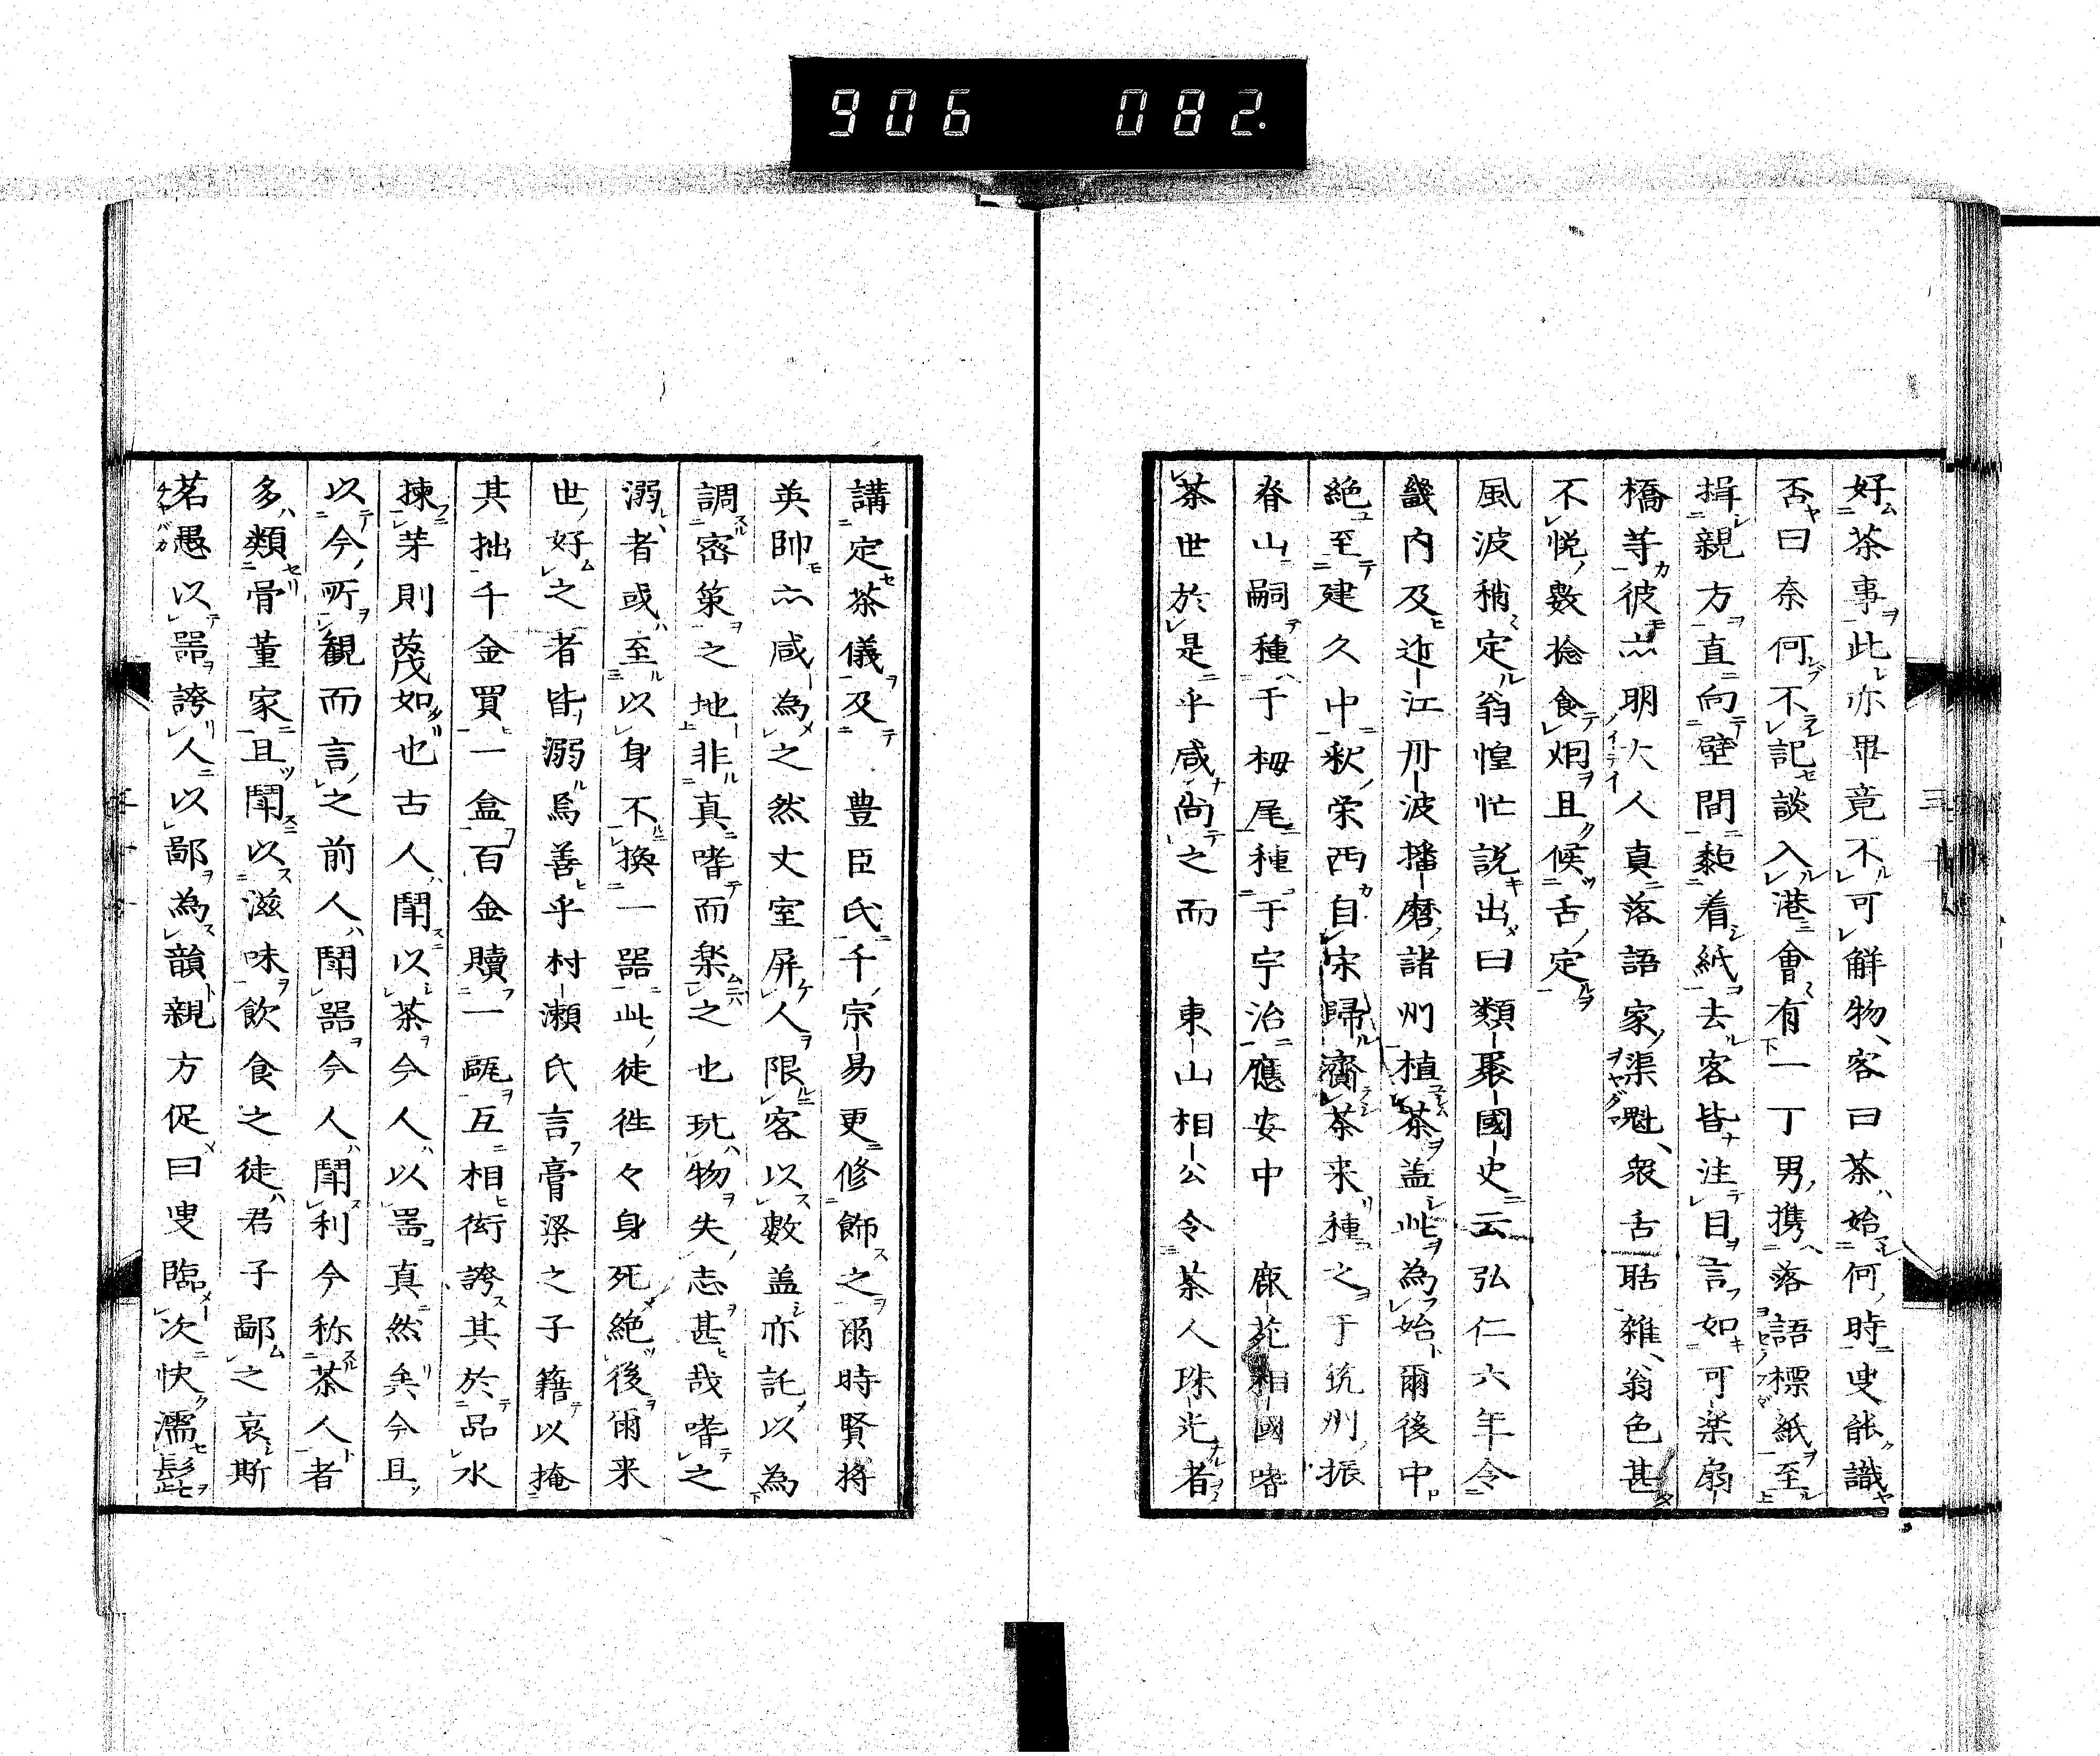 906 082.
好茶事此亦畢竟不可解物客曰茶始何時叟能識
否曰奈何不記談入港會有一丁男携落語標紙至
揖親方直向壁間黏着紙去客皆注目言如可楽扇
橋等彼亦明大人真落語家渠魁衆舌聒雑翁色甚
不悦數捻食烟且候舌定
風波稍定翁惶忙説出曰類聚國史云弘仁六年令
畿内及近江丹波播磨諸州植茶盖此為始爾後中
絶至建久中釈栄西自宋歸齎茶来種之于筑州振
脊山嗣種于栂尾種于宇治應安中　鹿苑相國嗜
茶世於是乎咸尚之而　東山相公令茶人珠光者
講定茶儀及　豊臣氏千宗易更修飾之爾時賢将
英帥亦咸為之然丈室屏人限客以數盖亦託以為
調密策之地非真嗜而楽之也玩物失志甚哉嗜之
溺者或至以身不換一器此徒往々身死絶後爾来
世好之者皆溺焉善乎村瀬氏言膏粱之子籍以掩
其拙千金買一盒百金贖一甌互相衒誇其於品水
揀芽則蔑如也古人鬧以茶今人以器真然矣今且
以今所観而言之前人鬧器今人鬧利今称茶人者
多類骨董家且鬧以滋味飲食之徒君子鄙之哀斯
茗愚以器誇人以鄙為韻親方促曰叟臨次快濡髭